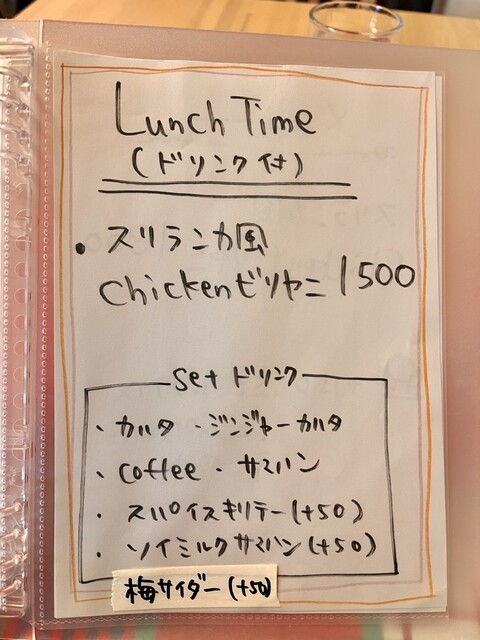 Lunch Time
(ドリンク付)
・スリランカ風
chickenビリヤニ 1500
set ドリンク
・カハタ ・ジンジャーカハタ
・coffee ・サマハン
・スパイスキリテー(+50)
・ソイミルクサマハン(+50)
梅サイダー(+50)